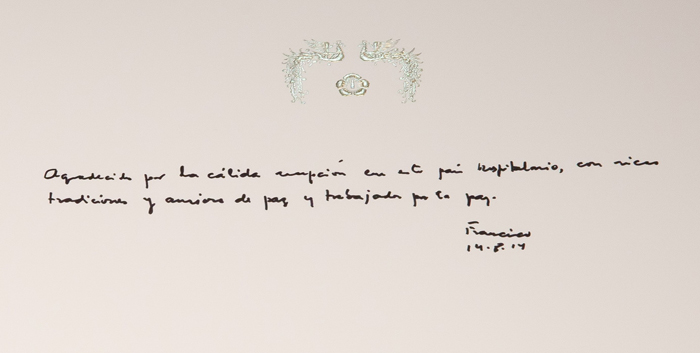 Agradecido por la cálida recepción en este país hospitalario, con ricas
tradiciones y ansioso de paz y trabajador por la paz.
Francisco
14.8.14